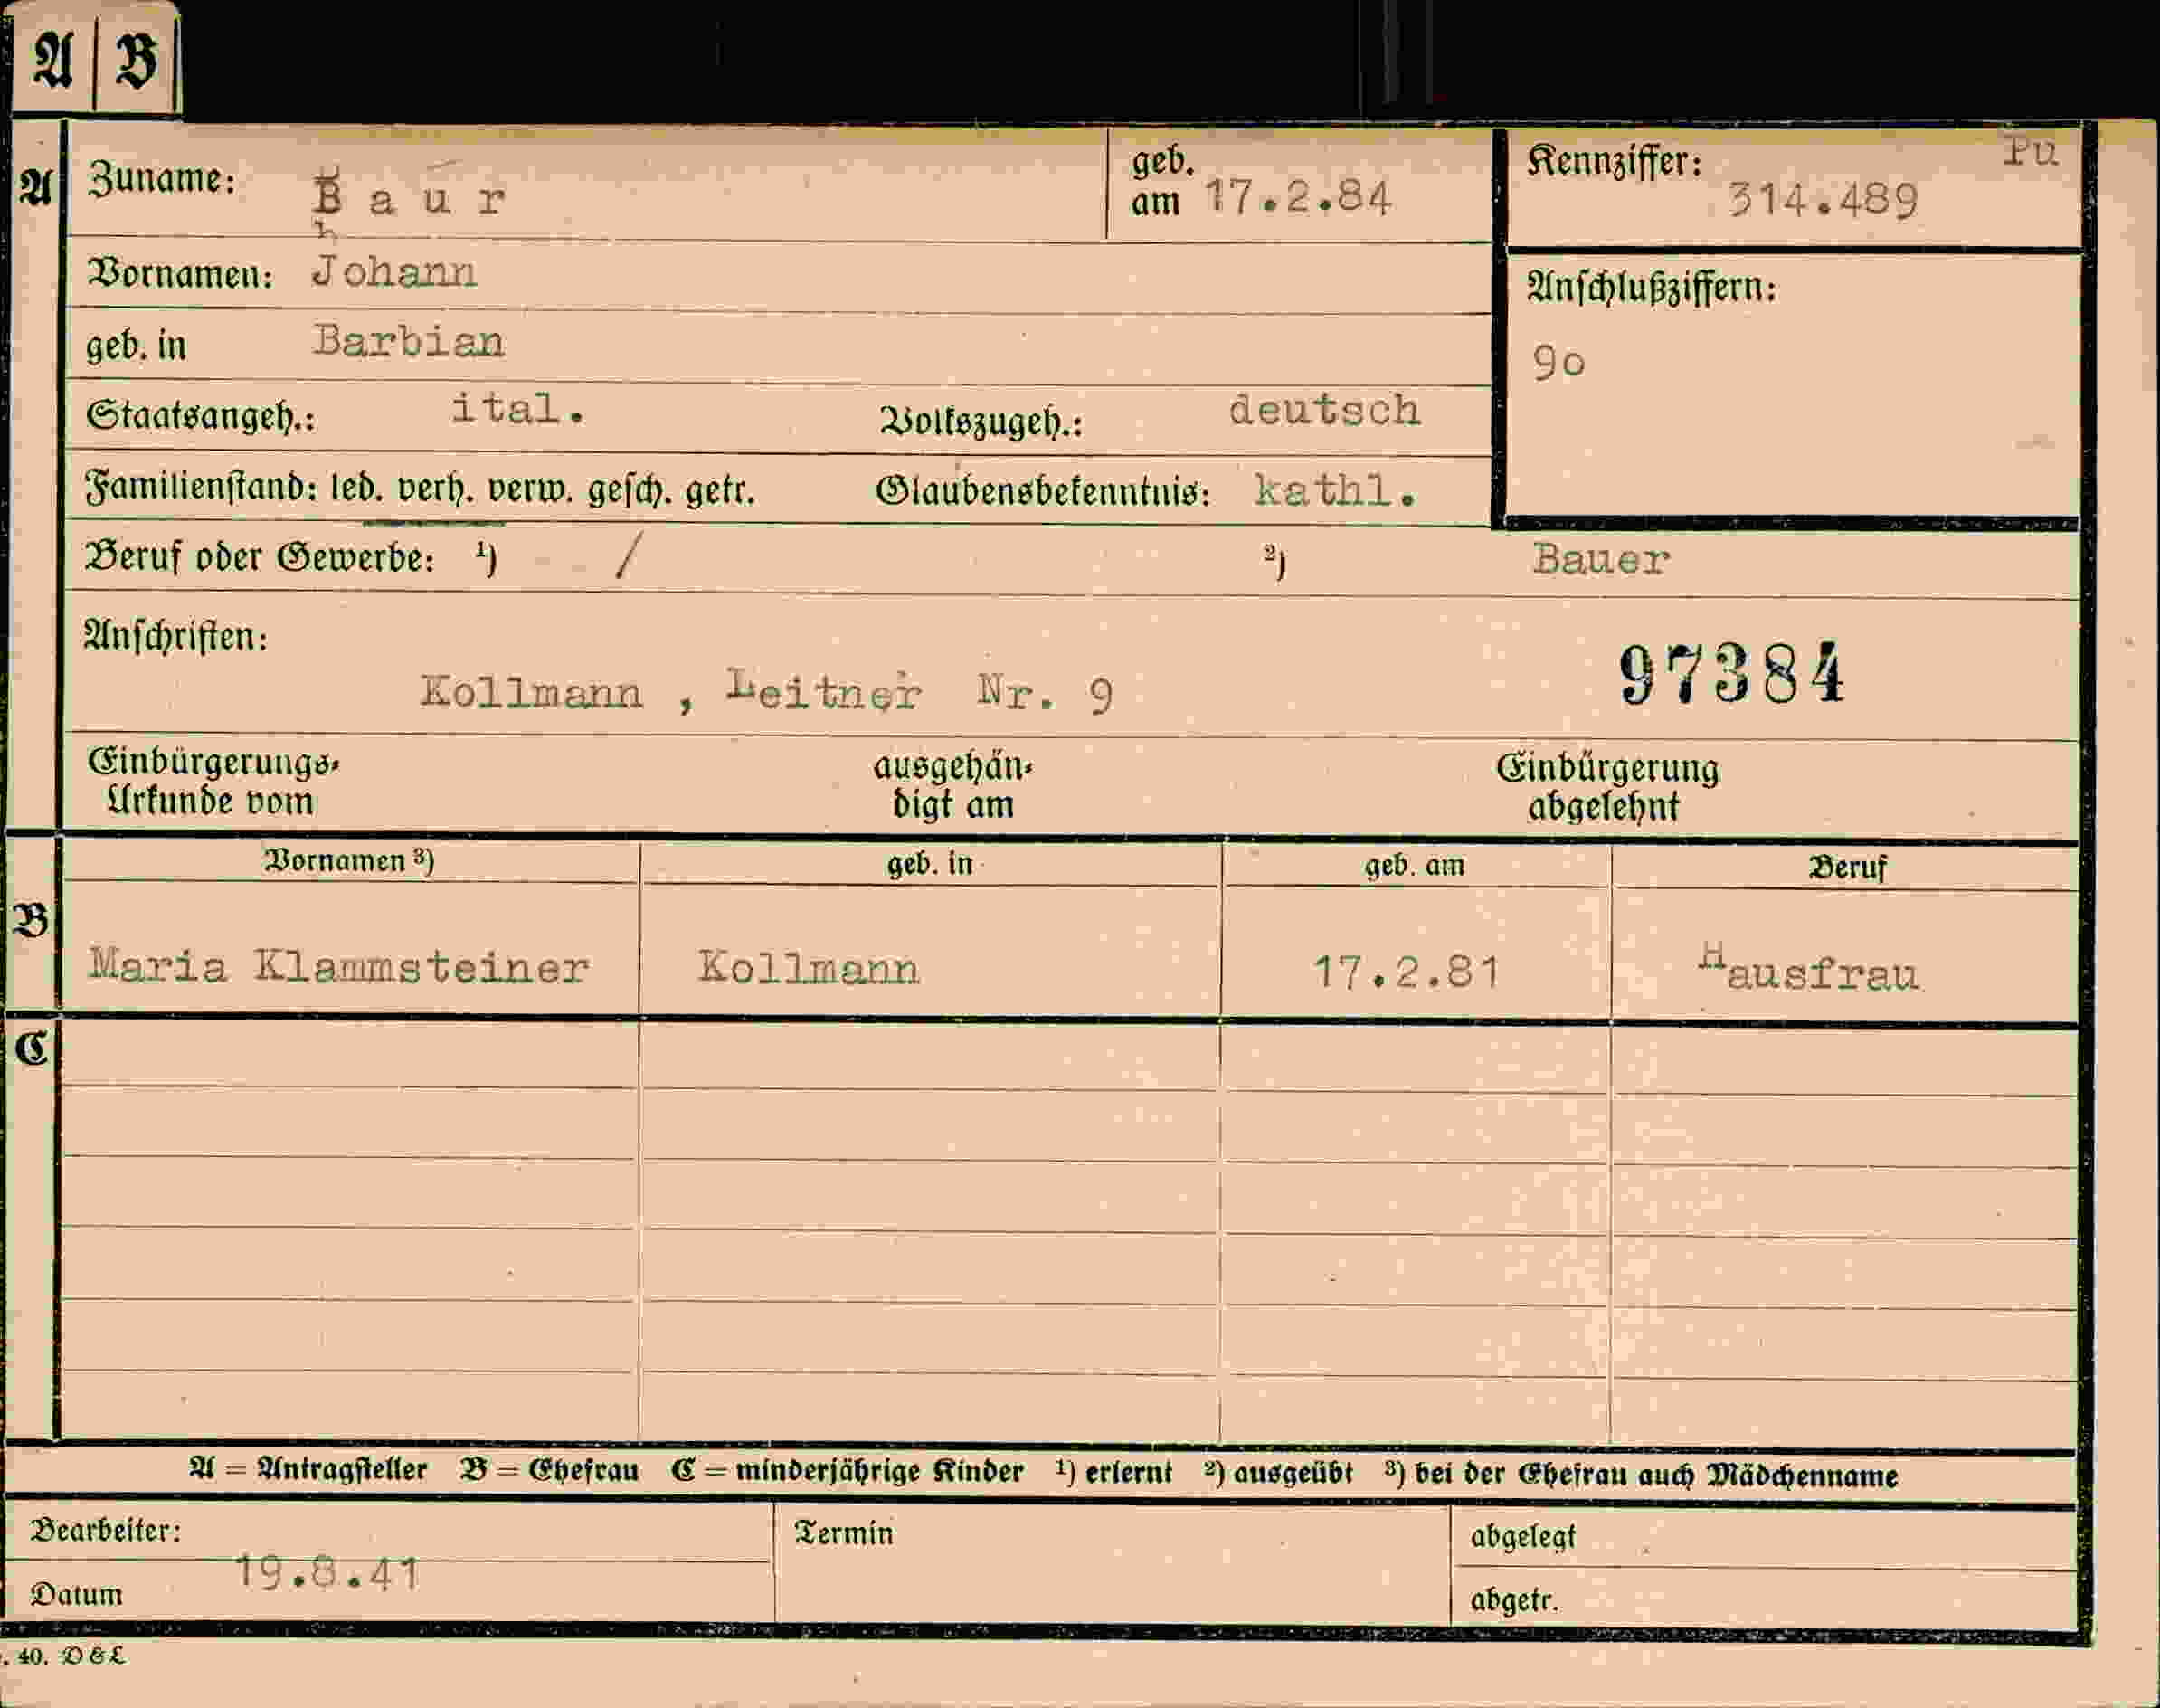 A B
A Zuname: Baur geb. am 17.2.84 Kennziffer: 314.489 Pu
Vornamen: Johann
Anschlußziffern:
geb. in Barbian
90
Staatsangeh.: ital. Volkszugeh.: deutsch
Familienstand: led. verh. verw. gesch. getr. Glaubensbekenntnis: kathl.
Beruf oder Gewerbe: ¹) / ²) Bauer
Anschriften:
Kollmann , Leitner Nr. 9 97384
Einbürgerungs- ausgehän- Einbürgerung
Urkunde vom digt am abgelehnt
Vornamen ³) geb. in geb. am Beruf
B
Maria Klammsteiner Kollmann 17.2.81 Hausfrau
C
A = Antragsteller B = Ehefrau C = minderjährige Kinder ¹) erlernt ²) ausgeübt ³) bei der Ehefrau auch Mädchenname
Bearbeiter: Termin abgelegt
19.8.41
Datum abgetr.
. 40. D & L